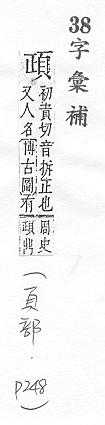 38字彙補
頙
初責切音拆正也周史
又人名博古圖有頙鼎
(頁部.
p248)